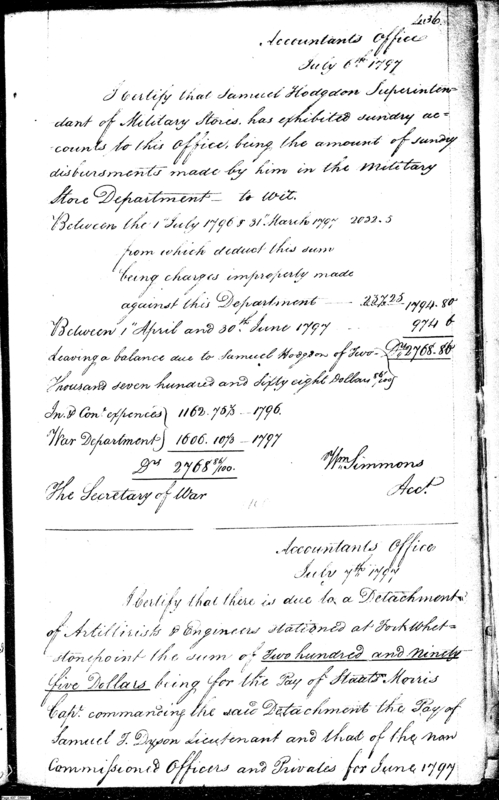 436.
Accountants Office
July 6th 1797
I Certify that Samuel Hodgdon Superinten-
dant of Military Stores, has exhibited sundry ac-
counts to this Office, being the amount of sundry
disbursments made by him in the Military
Store Department — to wit.
Between the 1st July 1796 & 31st March 1797 2032.5
from which deduct this sum
being charges improperly made
against this Department 1794.80
Between 1st April and 30th June 1797 974 6
Leaving a balance due to Samuel Hodgdon of Two Drs 2768.86
Thousand seven hundred and sixty eight Dollars 86/100
In. & Cont. expences 1162.75½ — 1796.
War Department 1606.10½ — 1797
Drs 2768 86/100.
The Secretary of War
Wm Simmons
Acct.
Accountants Office
July 7th 1797
I Certify that there is due to a Detachment
of Artillirists & Engineers stationed at Fort Whet-
stonepoint the sum of Two hundred and Ninety
five Dollars being for the Pay of Staats Morris
Capt. commancing the said Detachment the Pay of
Samuel T. Dyson Lieutenant and that of the non
Commissioned Officers and Privates for June 1797